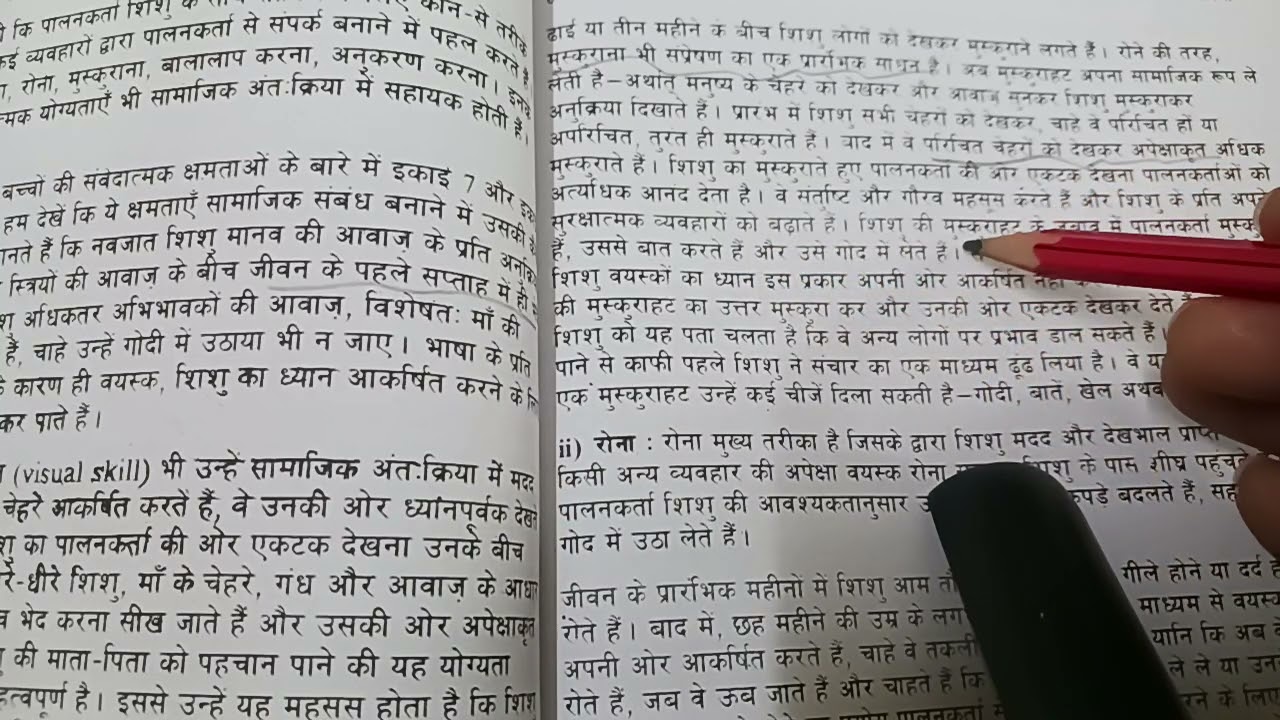 कि पालनकर्ता शिशु के
कई व्यवहारों द्वारा पालनकर्ता से संपर्क बनाने में पहल करते
रोना, मुस्कुराना, बालालाप करना, अनुकरण करना।
योग्यताएँ भी सामाजिक अंतःक्रिया में सहायक होती हैं।
बच्चों की संवेदात्मक क्षमताओं के बारे में इकाई 7 और
हम देखें कि ये क्षमताएँ सामाजिक संबंध बनाने में उसकी
हैं कि नवजात शिशु मानव की आवाज के प्रति
स्त्रियों की आवाज़ के बीच जीवन के पहले सप्ताह में ही
अधिकतर अभिभावकों की आवाज़, विशेषतः माँ की
है, चाहे उन्हें गोदी में उठाया भी न जाए। भाषा के प्रति
कारण ही वयस्क, शिशु का ध्यान आकर्षित करने के
कर पाते हैं।
(visual skill) भी उन्हें सामाजिक अंतःक्रिया में मदद
चेहरे आकर्षित करते हैं, वे उनकी ओर ध्यानपूर्वक देखते
का पालनकर्ता की ओर एकटक देखना उनके बीच
धीरे शिशु, माँ के चेहरे, गंध और आवाज़ के
भेद करना सीख जाते हैं और उसकी ओर अपेक्षाकृत
की माता-पिता को पहचान पाने की यह योग्यता
है। इससे उन्हें यह महसूस होता है कि
ढाई या तीन महीने के बीच शिशु लोगों को देखकर मुस्कुराने लगते हैं। रोने की तरह,
मुस्कुराना भी संप्रेषण का एक प्रारंभिक साधन है। अब मुस्कराहट अपना सामाजिक रूप ले
लेती है–अर्थात् मनुष्य के चेहरे को देखकर और आवाज़ सुनकर शिशु मुस्कराकर
अनुक्रिया दिखाते हैं। प्रारंभ में शिशु सभी चेहरों को देखकर, चाहे वे परिचित हों या
अपरिचित, तुरंत ही मुस्कुराते हैं। बाद में वे परिचित चेहरों को देखकर अपेक्षाकृत अधिक
मुस्कुराते हैं। शिशु का मुस्कुराते हुए पालनकर्ता की ओर एकटक देखना पालनकर्ताओं को
अत्यधिक आनंद देता है। वे संतुष्टि और गौरव महसूस करते हैं और शिशु के प्रति अपने
सुरक्षात्मक व्यवहारों को बढ़ाते हैं। शिशु की मुस्कराहट के जवाब में पालनकर्ता
हैं, उससे बात करते हैं और उसे गोद में लेते हैं।
शिशु वयस्कों का ध्यान इस प्रकार अपनी ओर आकर्षित नहीं
की मुस्कुराहट का उत्तर मुस्कुरा कर और उनकी ओर एकटक देखकर देते
शिशु को यह पता चलता है कि वे अन्य लोगों पर प्रभाव डाल सकते हैं।
पाने से काफी पहले शिशु ने संचार का एक माध्यम ढूंढ लिया है। वे
एक मुस्कुराहट उन्हें कई चीजें दिला सकती है–गोदी, बातें, खेल
ii) रोना : रोना मुख्य तरीका है जिसके द्वारा शिशु मदद और देखभाल
किसी अन्य व्यवहार की अपेक्षा वयस्क रोना के पास शीघ्र
पालनकर्ता शिशु की आवश्यकतानुसार कपड़े बदलते हैं,
गोद में उठा लेते हैं।
जीवन के प्रारंभिक महीनों में शिशु आम गीले होने या दर्द
रोते हैं। बाद में, छह महीने की उम्र के माध्यम से
अपनी ओर आकर्षित करते हैं, चाहे वे कि अब
रोते हैं, जब वे ऊब जाते हैं और चाहते हैं कि ले ले या
पालनकर्ता के लिए